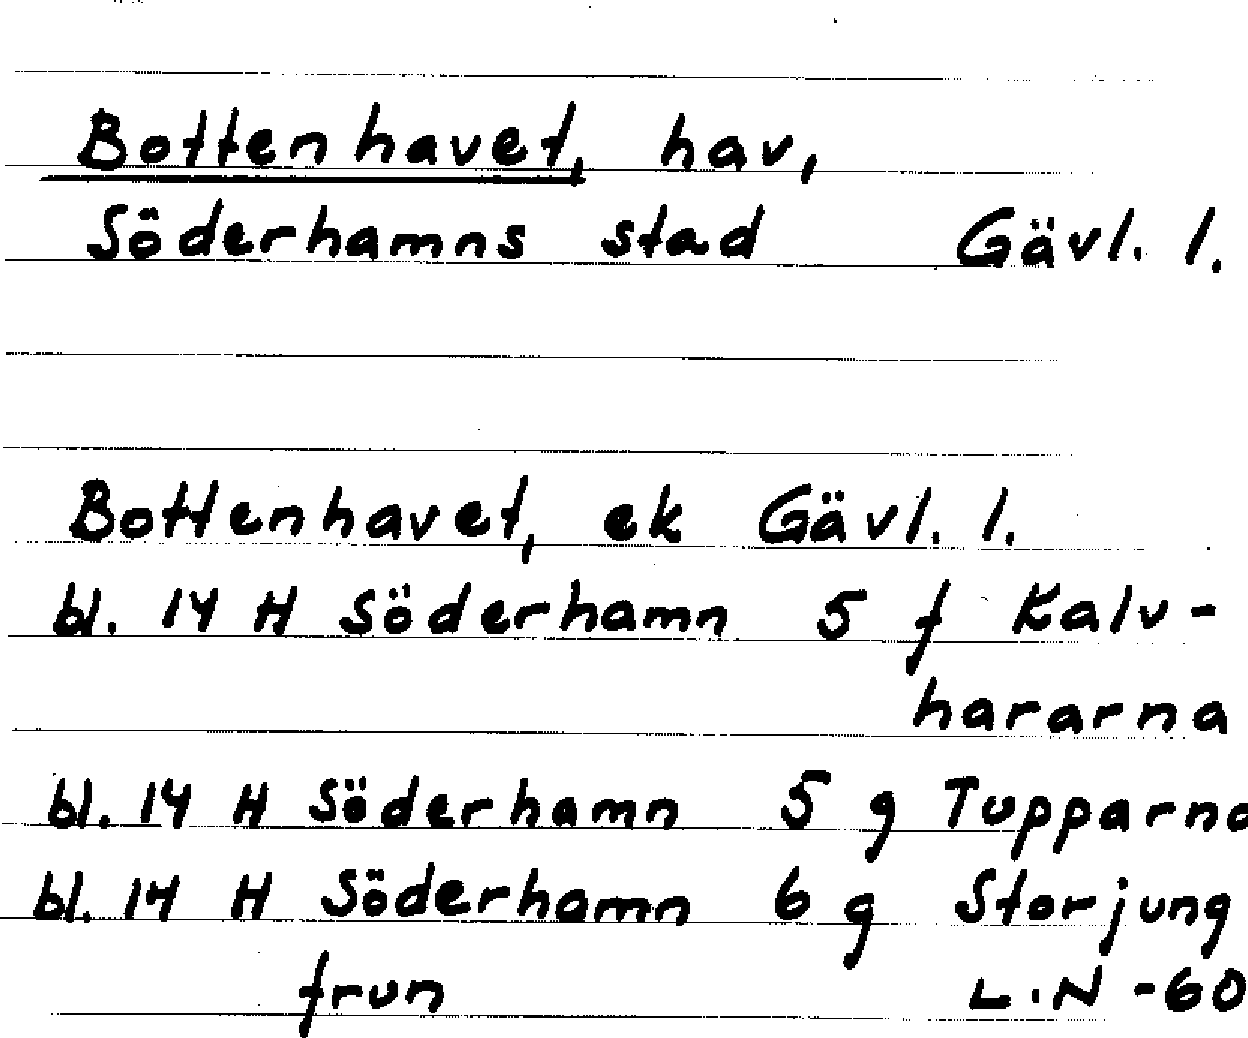 Bottenhavet, hav,
Söderhamns stad Gävl. l.
Bottenhavet, ek Gävl. l.
bl. 14 H Söderhamn 5 f Kalv-
hararna
bl. 14 H Söderhamn 5 g Tupparna
bl. 14 H Söderhamn 6 g Storjung
frun L.N -60